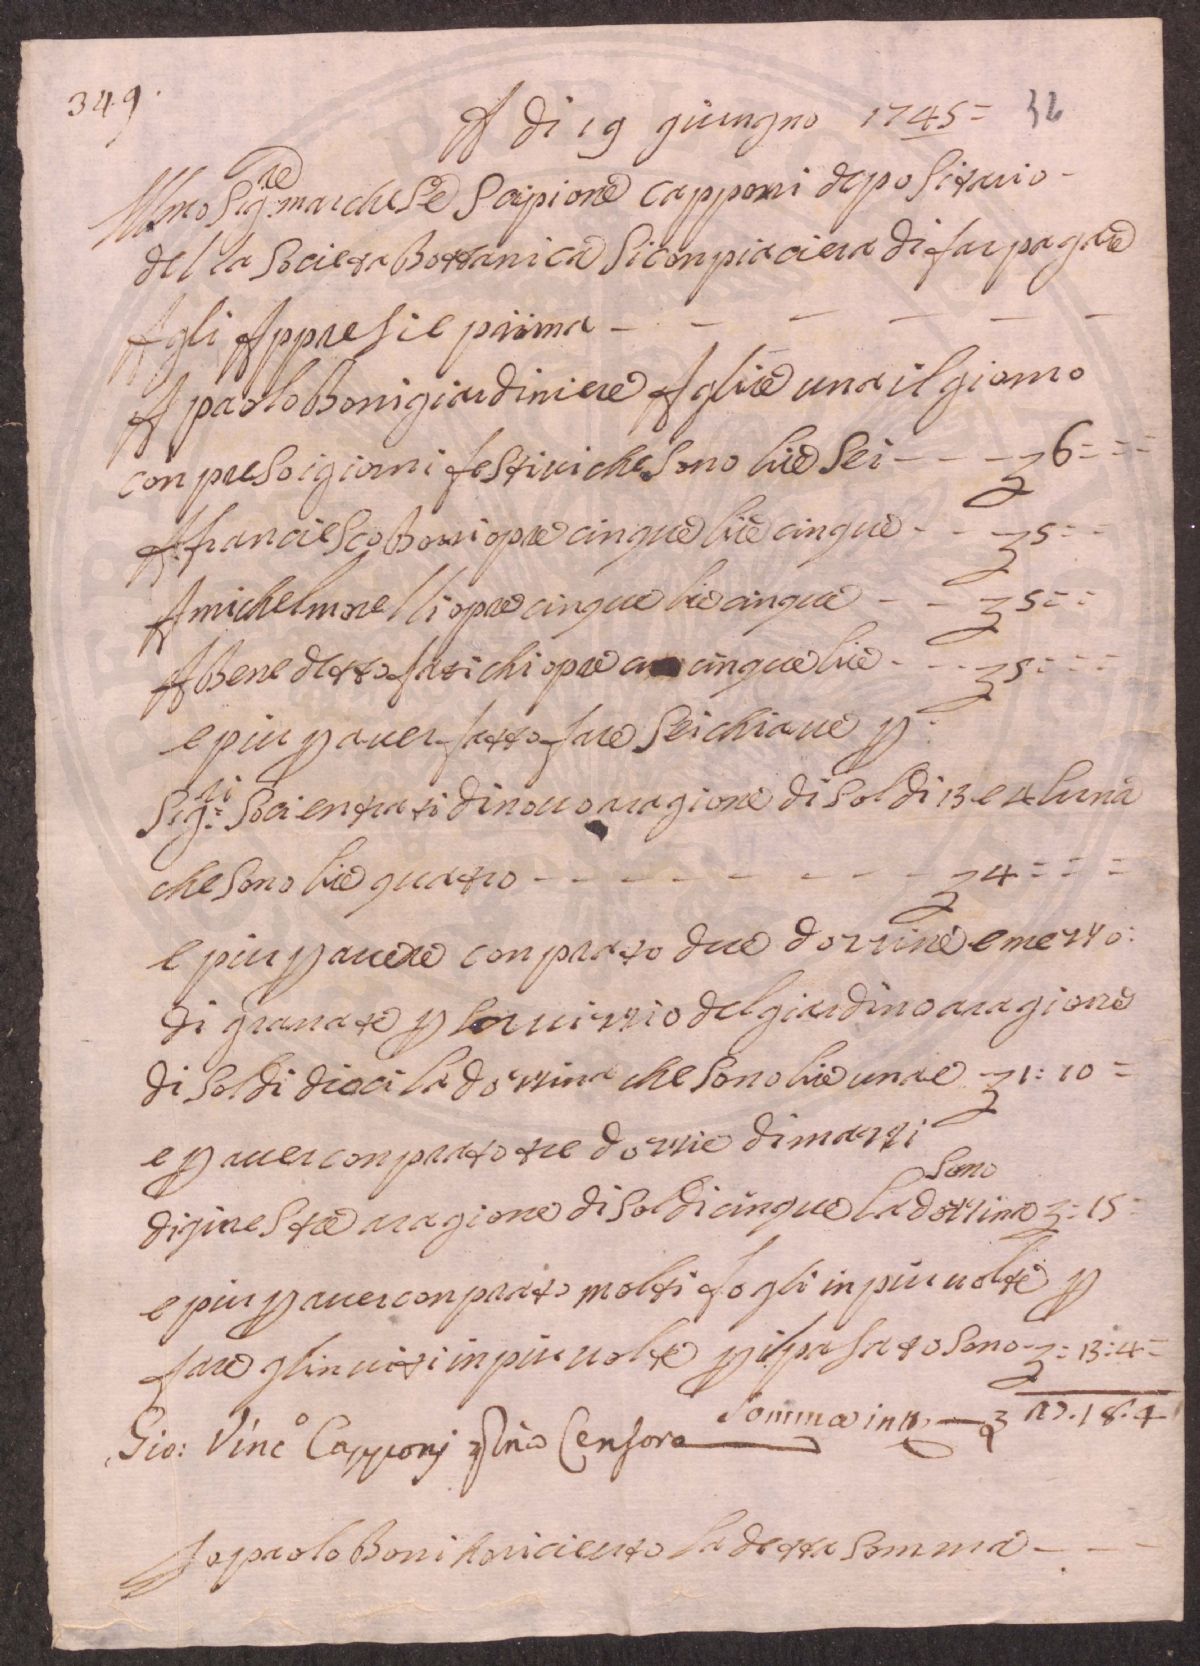 349.
A di 19 giungno 1745 = 32
Ill.mo Sig.re marchese Scipione Capponi depositario -
del la Societa Bottanica Si conpiaciera di far pagare
A gli Appresi e priima - - - - -
A paolo Boni giardiniere A glire una il giorno
con preso i giorni festivi che sono lire sei - - - 6 = = =
A franciesco Boni opre cinque lire cinque - - 5 = =
A michel morelli opre cinque lire cinque - - 5 = :
A Benedetto fatichi opre cinque lire - - - 5 : = =
e piu p aver fatto fare sei chiave p
Sig.ri Soci entrati di novo a ragione di Soldi 13 e 4 luna
che sono lire quatro - - - - - - - - 4 = = =
e piu p avere conprato due dozzine e mezzo :
di granate p servizzio del giardino a ragione
di Soldi dieci la dozzina che sono lire una e 1 : 10 =
e p aver conprato tre dozzie di mazzi
di ginestre a ragione di Soldi cinque la dozzina sono = 15 =
e piu p aver conprato molti fogli in piu volte p
fare glinviti in piu volte p il pasato sono = 13 : 4 =
Somma in tt.o 27. 18. 4
Gio: Vinc.o Capponj Censore
Io paolo Boni ho riciento la detta somma - - -